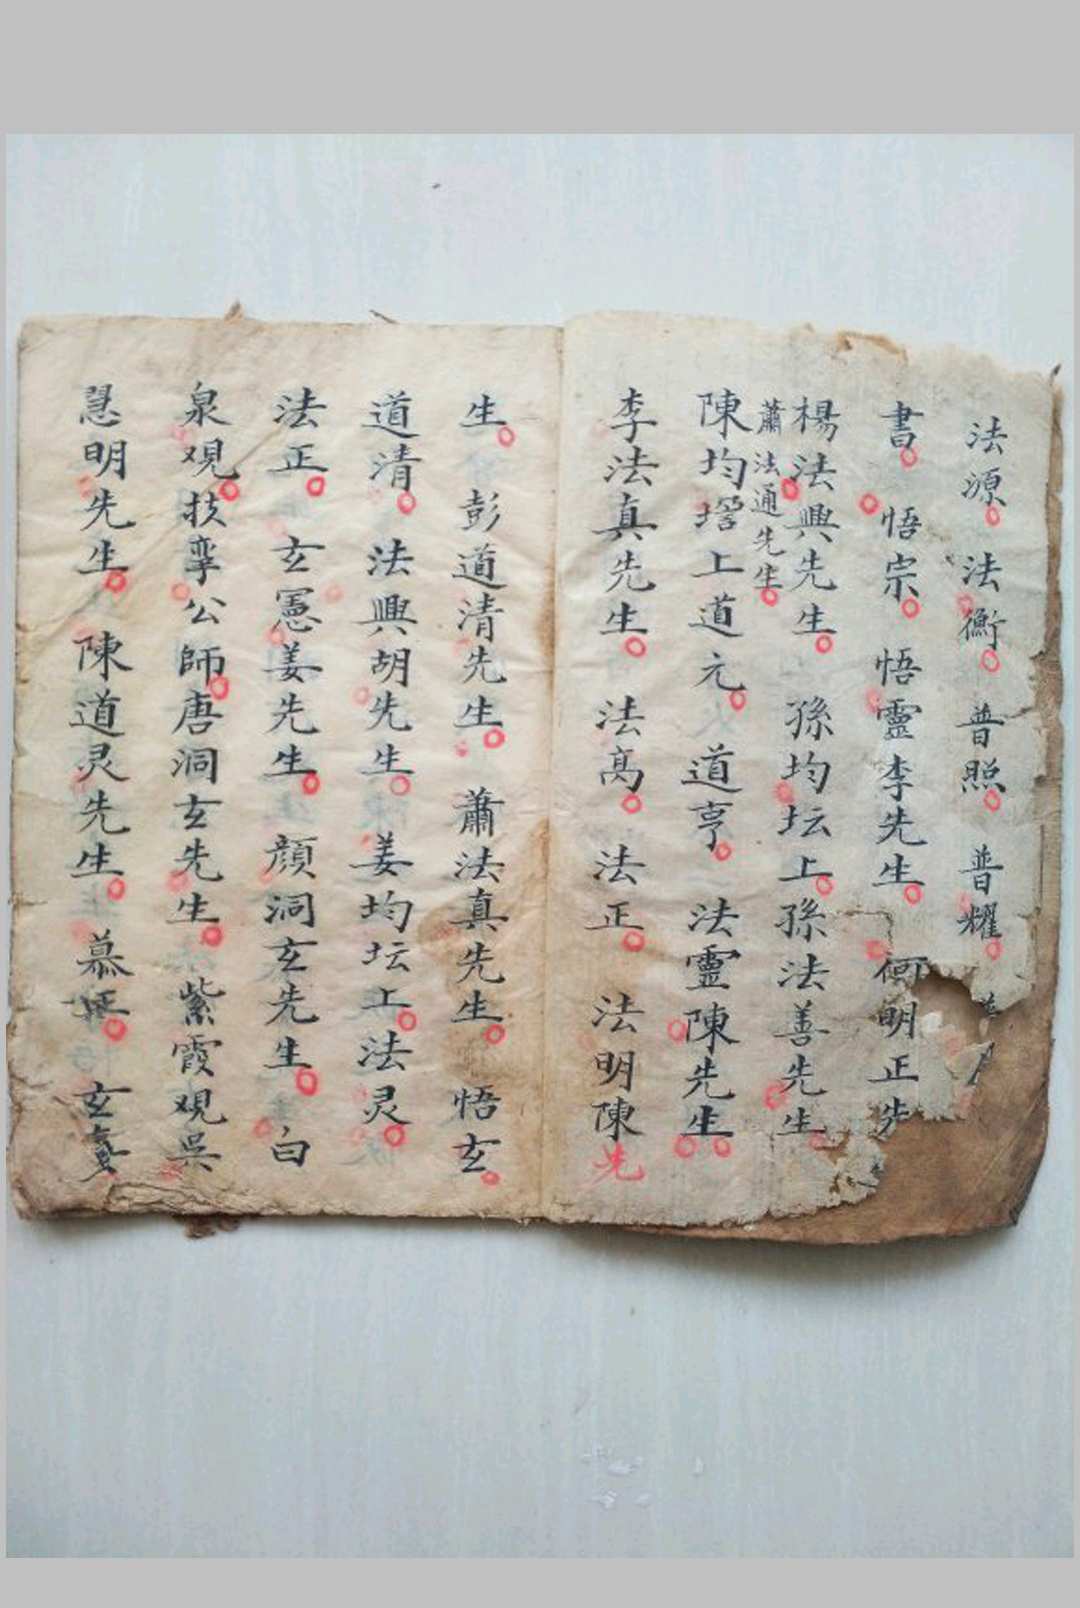 法源 法衡 普照 普耀
書 悟宗 悟靈李先生 何明正先
楊法興先生 孫均坛上孫法善先生
蕭法通先生
陳均壇上道元 道亨 法靈陳先生
李法真先生 法高 法正 法明陳先
生 彭道清先生 蕭法真先生 悟玄
道清 法興胡先生 姜均坛上法灵
法正 玄憲姜先生 顏洞玄先生 白
泉观扶鸞公師唐洞玄先生 紫霞观吳
慧明先生 陳道灵先生 慕 玄